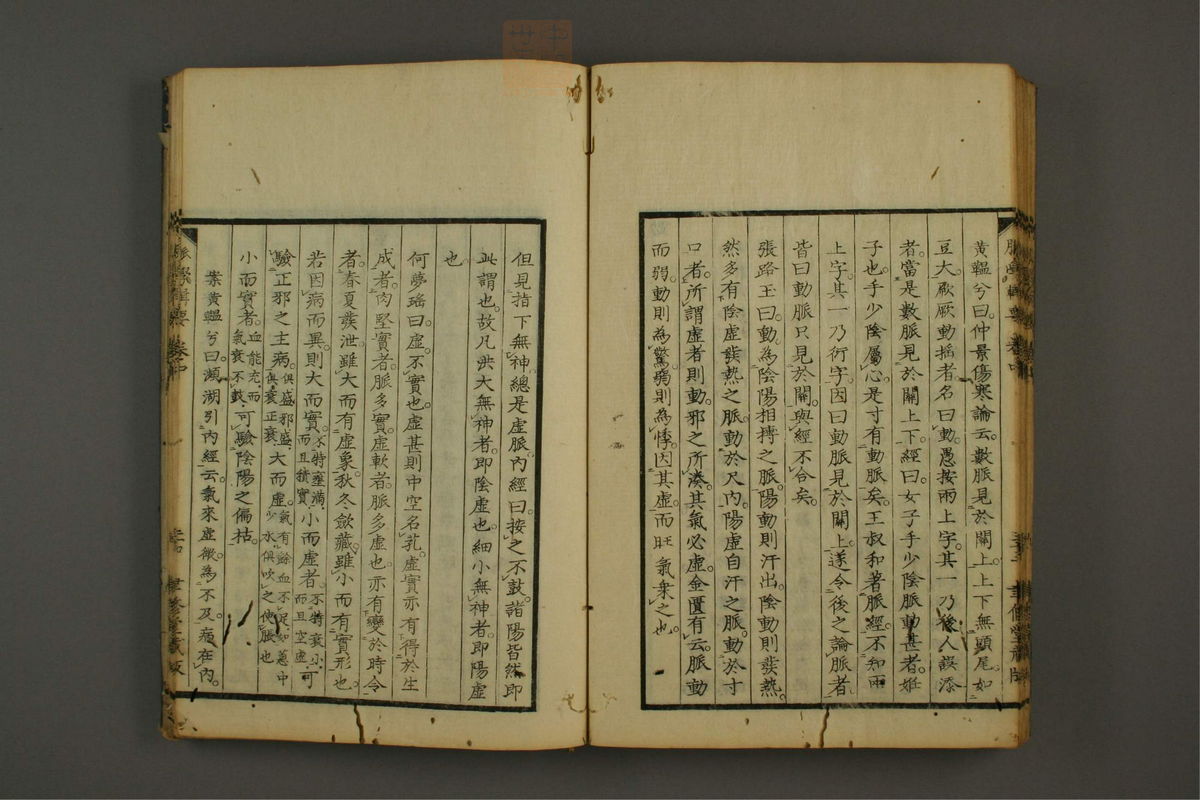 黃韞兮曰。仲景傷寒論云。數脈見於關上。上下無頭尾。如
豆大。厥厥動搖者。名曰動。愚按兩上字。其一乃後人誤添
者。當是數脈見於關上下。經曰。女子手少陰脈動甚者。妊
子也。手少陰屬心。是寸有動脈矣。王叔和著脈經。不知兩
上字。其一乃衍字。因曰動脈見於關上。遂令後之論脈者。
皆曰動脈只見於關。與經不合矣。
張路玉曰。動為陰陽相搏之脈。陽動則汗出。陰動則發熱。
然多有陰虛發熱之脈。動於尺內。陽虛自汗之脈。動於寸
口者。所謂虛者則動。邪之所湊。其氣必虛。金匱有云。脈動
而弱。動則為驚。弱則為悸。因其虛而旺氣乘之也。
脈學輯要 卷中
聿修堂藏版
但見指下無神。總是虛脈。內經曰。按之不鼓。諸陽皆然。即
此謂也。故凡洪大無神者。即陰虛也。細小無神者。即陽虛
也
何夢瑤曰。虛。不實也。虛甚則中空名芤。虛實亦有得於生
成者。肉堅實者。脈多實。虛軟者。脈多虛也。亦有變於時令
者。春夏發泄。雖大而有虛象。秋冬斂藏。雖小而有實形也。
若因病而異。則大而實。不特壅滿。而且積實。小而虛者。不特衰小。而且空虛。可
驗正邪之主病。俱盛邪盛。俱衰正衰。大而虛。氣有餘血不足。如蔥中少水。俱吹之使脹也
小而實者。血能充。而氣衰不鼓。可驗陰陽之偏枯。
案黃韞兮曰。瀕湖引內經云。氣來虛微為不及。病在內。
脈學輯要 卷中
聿修堂藏版